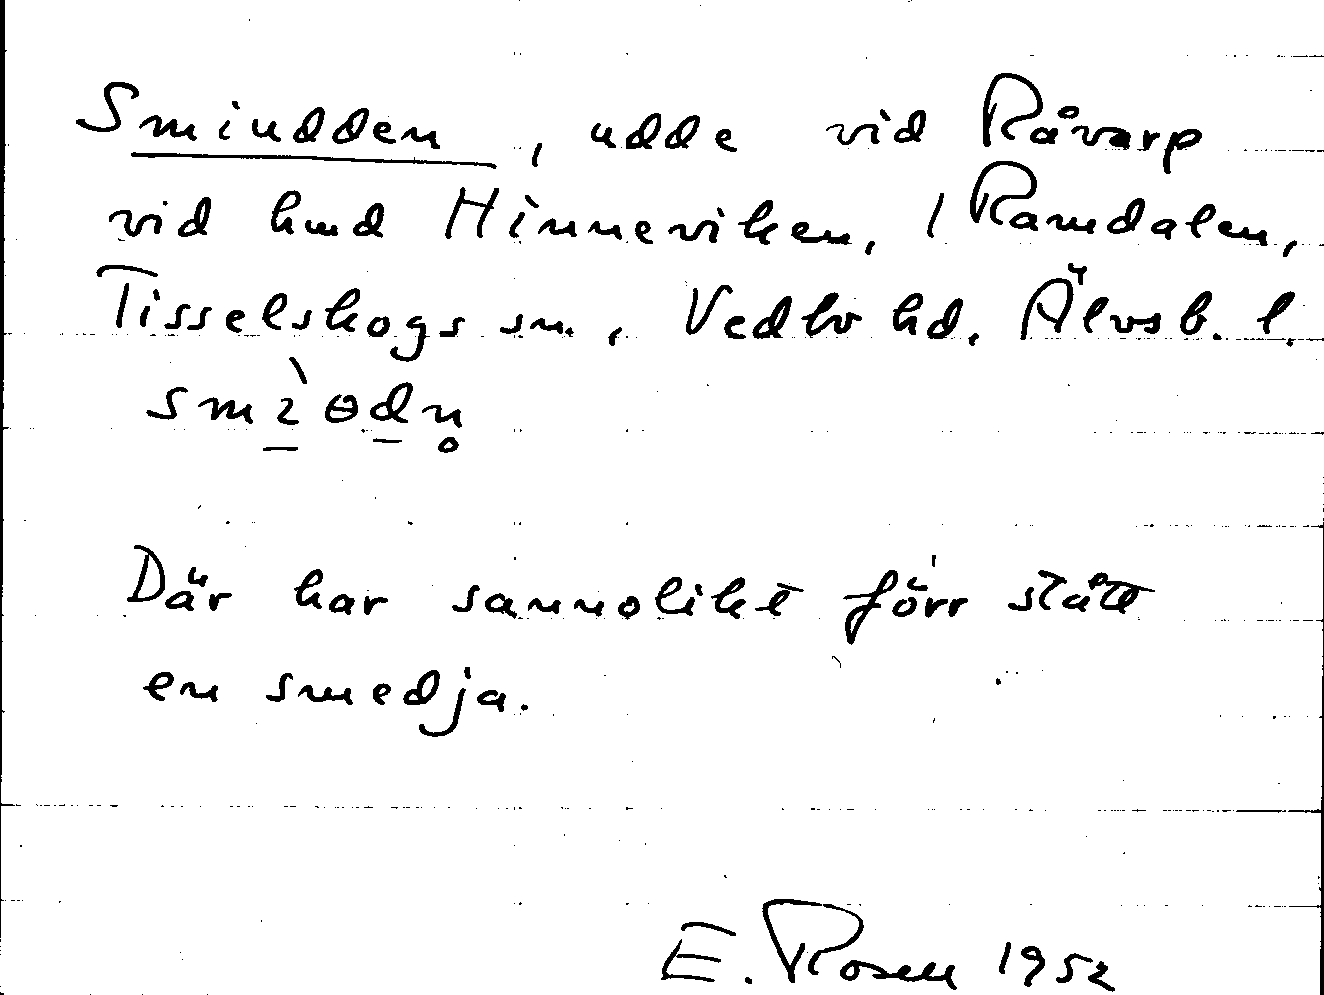 Smiudden, udde vid Råvarp
vid hmd Hinneviken, 1 Ramdalen,
Tisselskogs sn., Vedbo hd. Älvsb. l.
Där har sannolikt förr stått
en smedja.
E. Rosell 1952